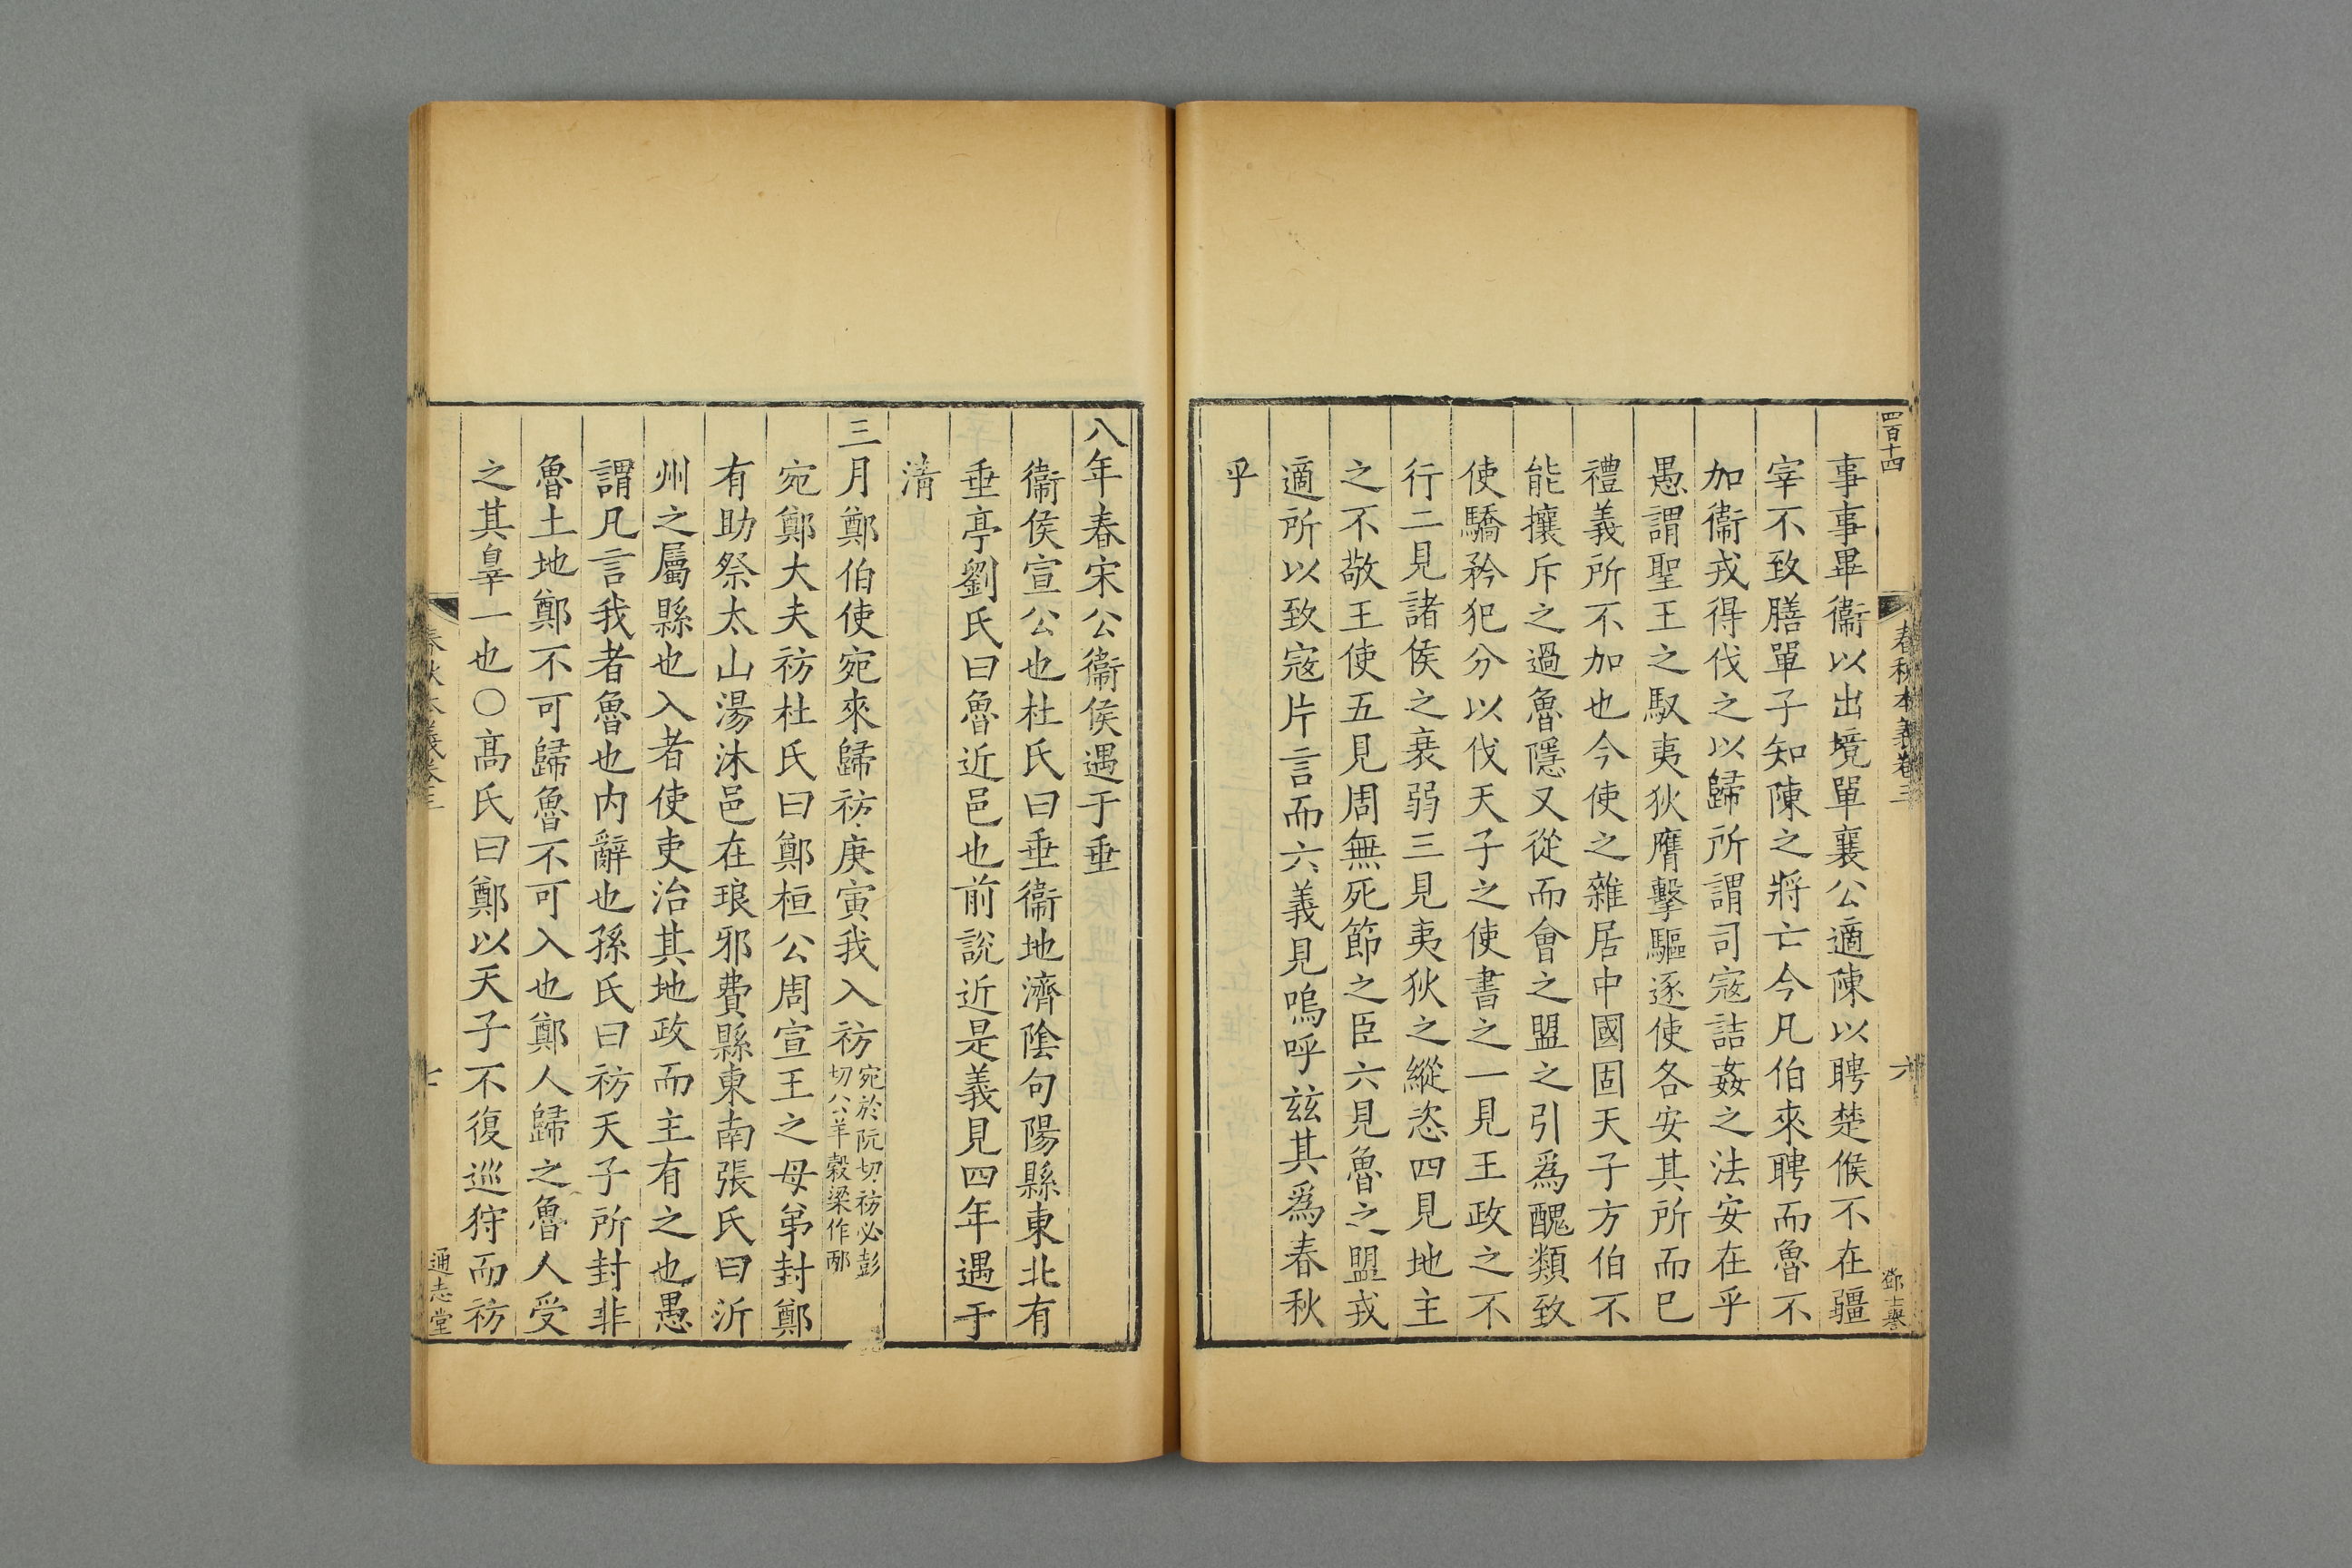 四百十四
春秋本義卷三
六
鄧士譽
事事畢衞以出境單襄公適陳以聘楚候不在疆
宰不致膳單子知陳之將亡今凡伯來聘而魯不
加衞戎得伐之以歸所謂司寇詰姦之法安在乎
愚謂聖王之馭夷狄膺擊驅逐使各安其所而已
禮義所不加也今使之雜居中國固天子方伯不
能攘斥之過魯隱又從而會之盟之引爲醜類致
使驕矜犯分以伐天子之使書之一見王政之不
行二見諸侯之衰弱三見夷狄之縱恣四見地主
之不敬王使五見周無死節之臣六見魯之盟戎
適所以致寇片言而六義見嗚呼兹其爲春秋
乎
八年春宋公衞侯遇于垂
衞侯宣公也杜氏曰垂衞地濟隂句陽縣東北有
垂亭劉氏曰魯近邑也前說近是義見四年遇于
淸
三月鄭伯使宛來歸祊庚寅我入祊宛於阮切祊必彭
切公羊穀梁作邴
宛鄭大夫祊杜氏曰鄭桓公周宣王之母弟封鄭
有助祭太山湯沐邑在琅邪費縣東南張氏曰沂
州之屬縣也入者使吏治其地政而主有之也愚
謂凡言我者魯也内辭也孫氏曰祊天子所封非
魯土地鄭不可歸魯不可入也鄭人歸之魯人受
之其辠一也○髙氏曰鄭以天子不復巡狩而祊
春秋本義卷三
七
通志堂